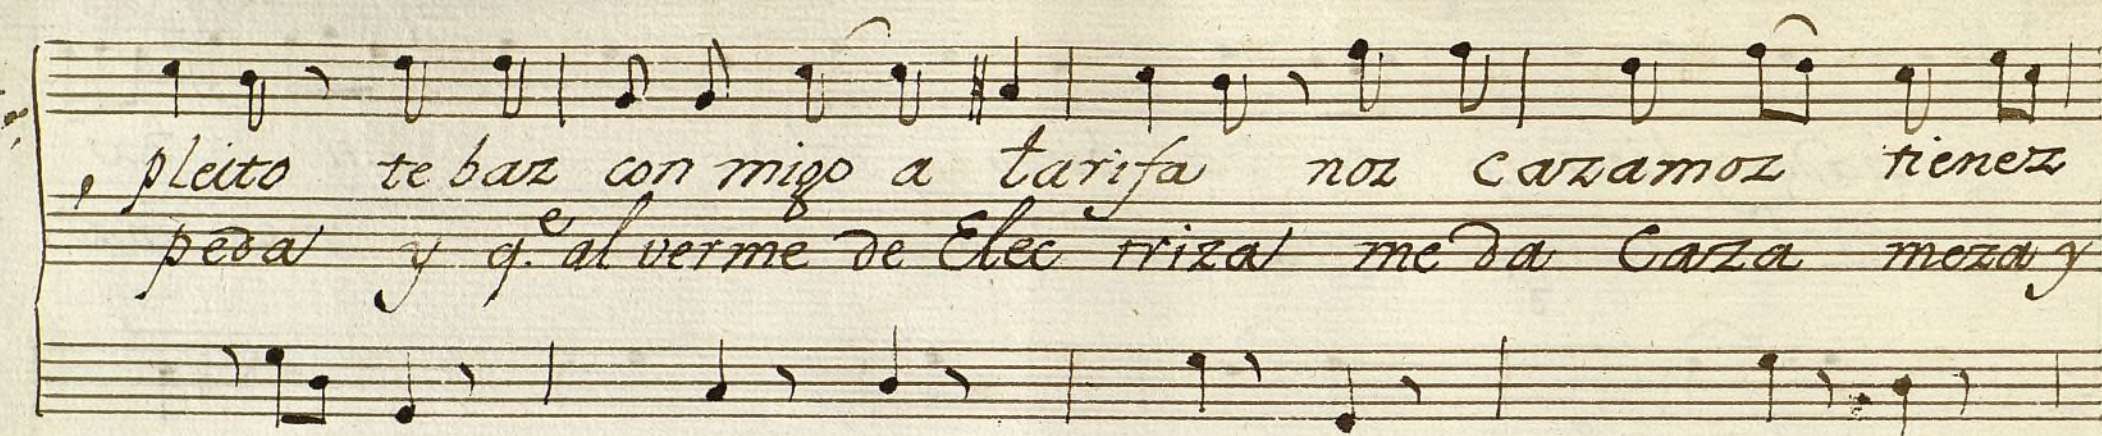 pleito te baz con migo a tarifa noz cazamoz tienez
peda y q.e al verme de Elec triza me da Caza meza y